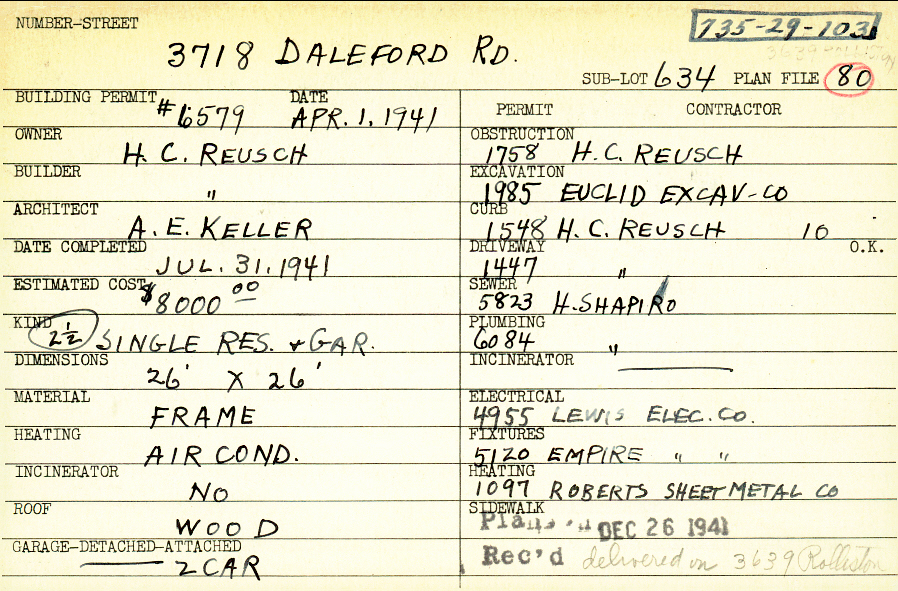 NUMBER-STREET
735-29-103
3718 DALEFORD RD.
SUB-LOT 634 PLAN FILE 80
BUILDING PERMIT #6579 DATE APR. 1, 1941
OWNER H. C. REUSCH
BUILDER "
ARCHITECT A. E. KELLER
DATE COMPLETED JUL. 31, 1941
ESTIMATED COST $8000 00
KIND 2½ SINGLE RES. + GAR.
DIMENSIONS 26' X 26'
MATERIAL FRAME
HEATING AIR COND.
INCINERATOR NO
ROOF WOOD
GARAGE-DETACHED-ATTACHED 2 CAR
PERMIT CONTRACTOR
OBSTRUCTION
1758 H. C. REUSCH
EXCAVATION
1985 EUCLID EXCAV-CO
CURB
1548 H. C. REUSCH 10
DRIVEWAY O.K.
1447 "
SEWER
5823 H. SHAPIRO
PLUMBING
6084 "
INCINERATOR
ELECTRICAL
4955 LEWIS ELEC. CO.
FIXTURES
5120 EMPIRE " "
HEATING
1097 ROBERTS SHEET METAL CO
SIDEWALK
Plans DEC 26 1941
Rec'd delivered on 3639 Rolliston